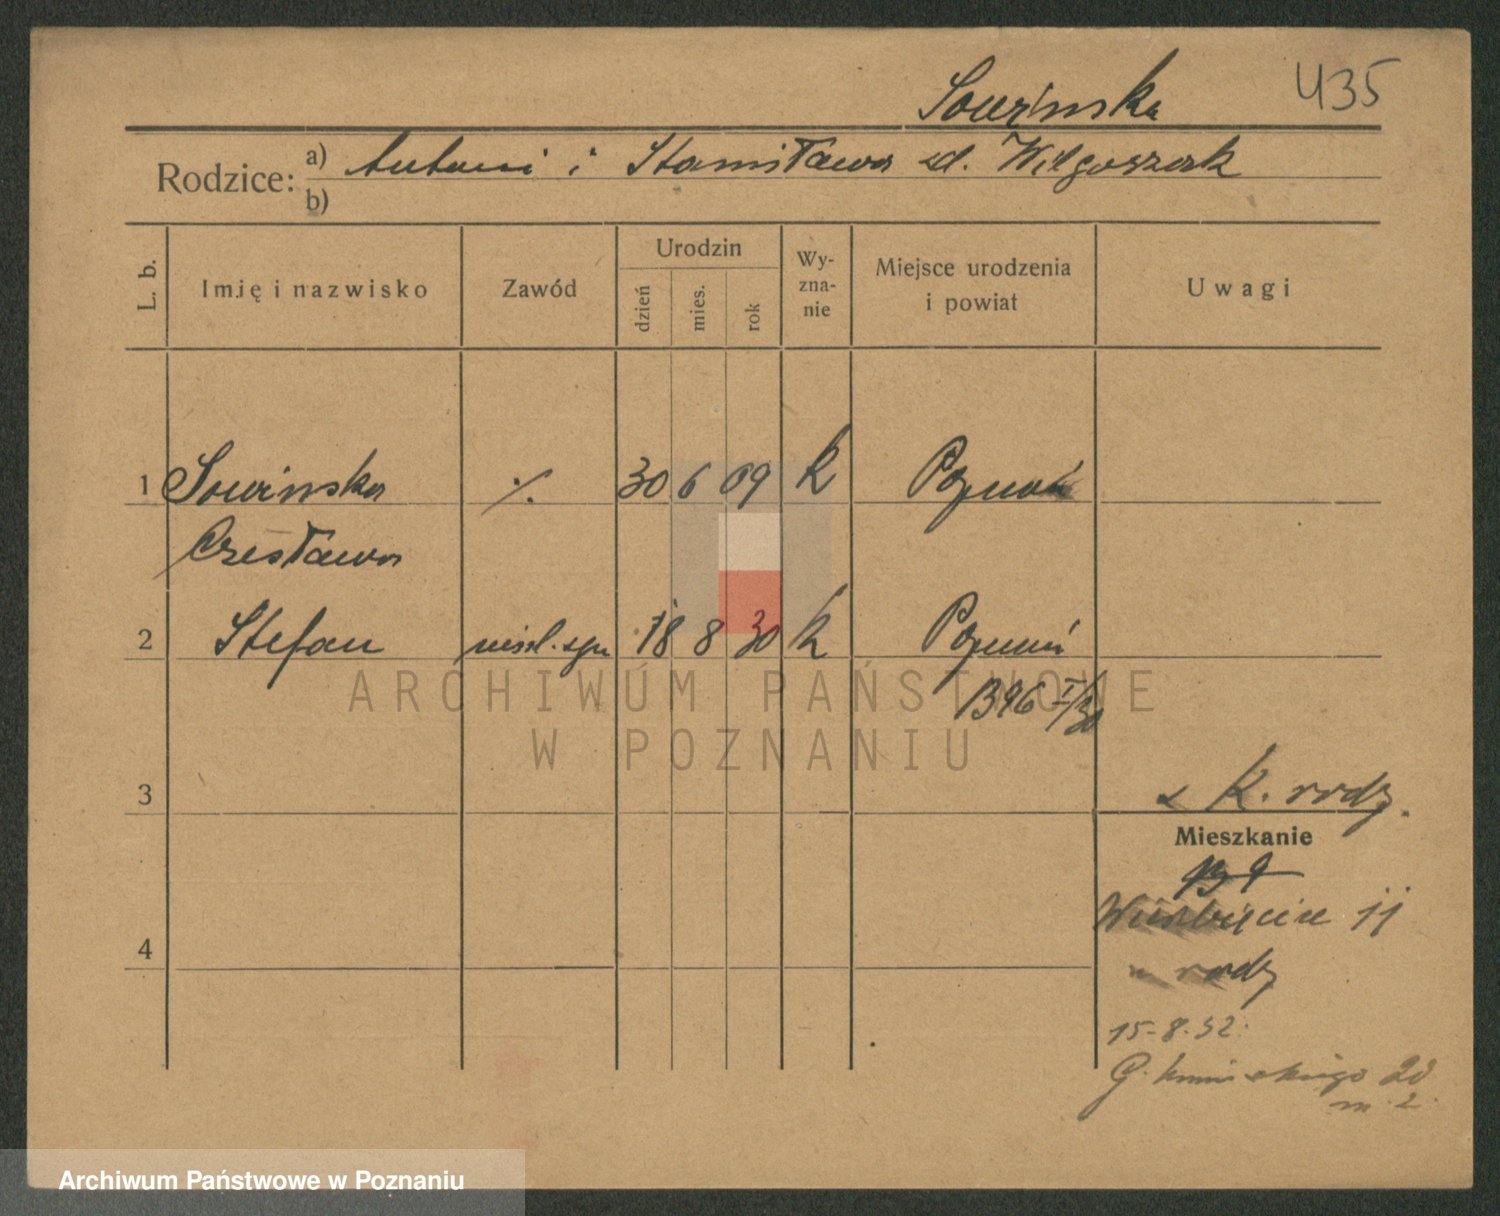 Sowińska 435
Rodzice: a) Antoni i Stanisława zd. Wilgoszak
b)
L. b. Imię i nazwisko Zawód Urodzin dzień mies. rok Wyznanie Miejsce urodzenia i powiat Uwagi
1 Sowinska ·/. 30 6 09 k Poznań
Czesława
2 Stefan 18 8 30 k Poznań
1396
3 K. rodz.
Mieszkanie
Wierzbięcice 11
4
rodz
15-8.32.
G. 20
m. 2.
ARCHIWUM PAŃSTWOWE
W POZNANIU
Archiwum Państwowe w Poznaniu